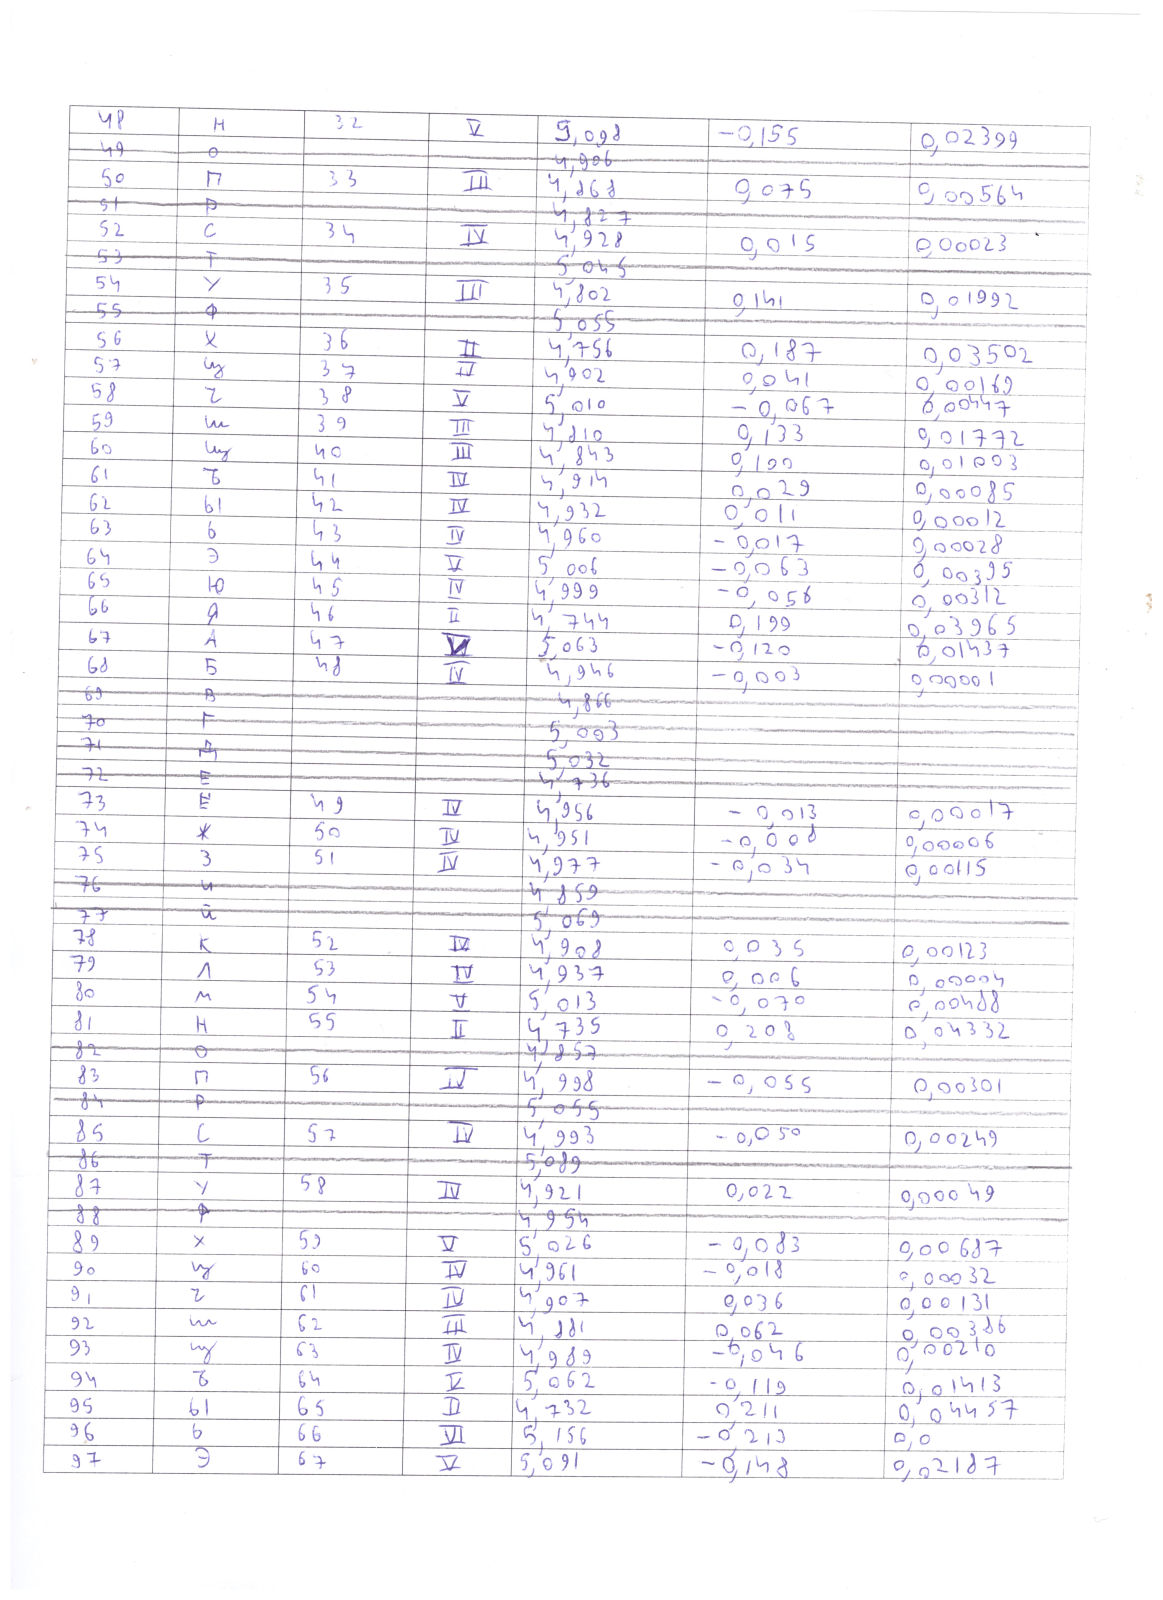 48 Н 32 V 5,098 -0,155 0,02399
49 О 4,906
50 П 33 III 4,868 0,075 0,00564
51 Р 4,827
52 С 34 IV 4,928 0,015 0,00023
53 Т 5,045
54 У 35 III 4,802 0,141 0,01992
55 Ф 5,055
56 Х 36 II 4,756 0,187 0,03502
57 Ц 37 IV 4,902 0,041 0,00169
58 Ч 38 V 5,010 -0,067 0,00447
59 Ш 39 III 4,810 0,133 0,01772
60 Щ 40 III 4,843 0,100 0,01003
61 Ъ 41 IV 4,914 0,029 0,00085
62 Ы 42 IV 4,932 0,011 0,00012
63 Ь 43 IV 4,960 -0,017 0,00028
64 Э 44 V 5,006 -0,063 0,00395
65 Ю 45 IV 4,999 -0,056 0,00312
66 Я 46 II 4,744 0,199 0,03965
67 А 47 V 5,063 -0,120 0,01437
68 Б 48 IV 4,946 -0,003 0,00001
69 В 4,866
70 Г 5,003
71 Д 5,032
72 Е 4,736
73 Ё 49 IV 4,956 -0,013 0,00017
74 Ж 50 IV 4,951 -0,008 0,00006
75 З 51 IV 4,977 -0,034 0,00115
76 И 4,859
77 Й 5,069
78 К 52 IV 4,908 0,035 0,00123
79 Л 53 IV 4,937 0,006 0,00004
80 М 54 V 5,013 -0,070 0,00488
81 Н 55 II 4,735 0,208 0,04332
82 О 4,857
83 П 56 IV 4,998 -0,055 0,00301
84 Р 5,055
85 С 57 IV 4,993 -0,050 0,00249
86 Т 5,089
87 У 58 IV 4,921 0,022 0,00049
88 Ф 4,954
89 Х 59 V 5,026 -0,083 0,00687
90 Ц 60 IV 4,961 -0,018 0,00032
91 Ч 61 IV 4,907 0,036 0,00131
92 Ш 62 III 4,881 0,062 0,00386
93 Щ 63 IV 4,989 -0,046 0,00210
94 Ъ 64 V 5,062 -0,119 0,01413
95 Ы 65 II 4,732 0,211 0,04457
96 Ь 66 VI 5,156 -0,213 0,0
97 Э 67 V 5,091 -0,148 0,02187